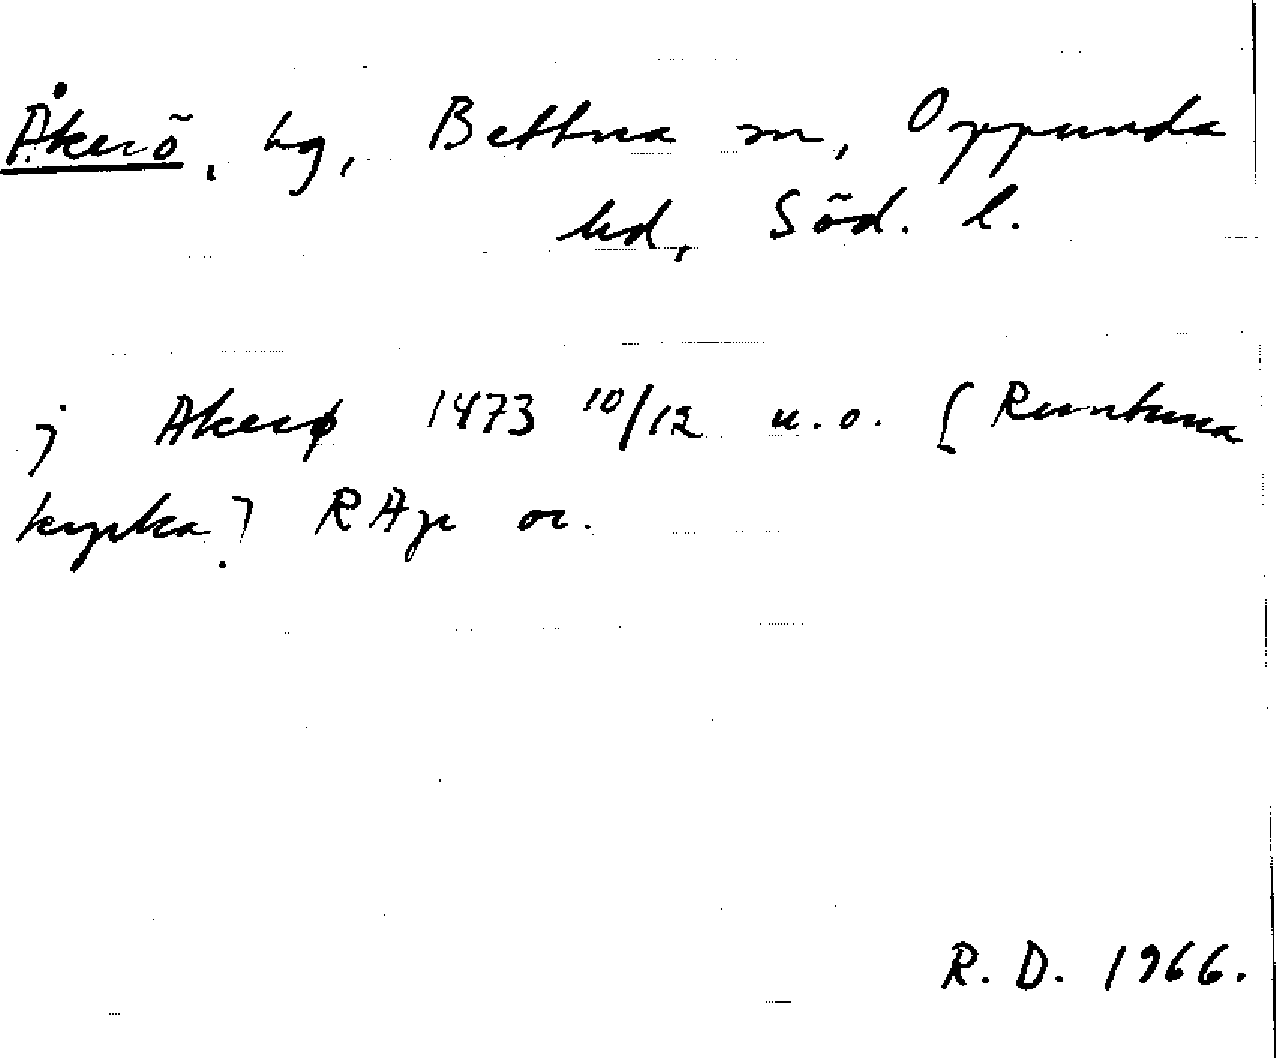 Åkerö, hg, Bettna sn, Oppunda
hd, Söd. l.
j Akerø 1473 10/12 u.o. [Runtuna
kyrka] RAp or.
R. D. 1966.